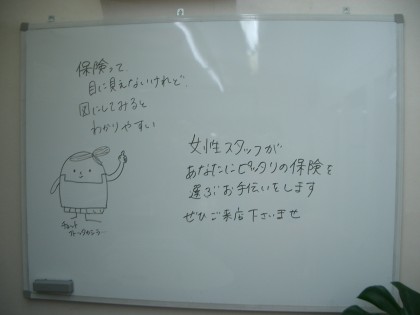 保険って
目に見えないけれど、
図にしてみると
わかりやすい
女性スタッフが
あなたにピッタリの保険を
選ぶお手伝いをします
ぜひご来店下さいませ